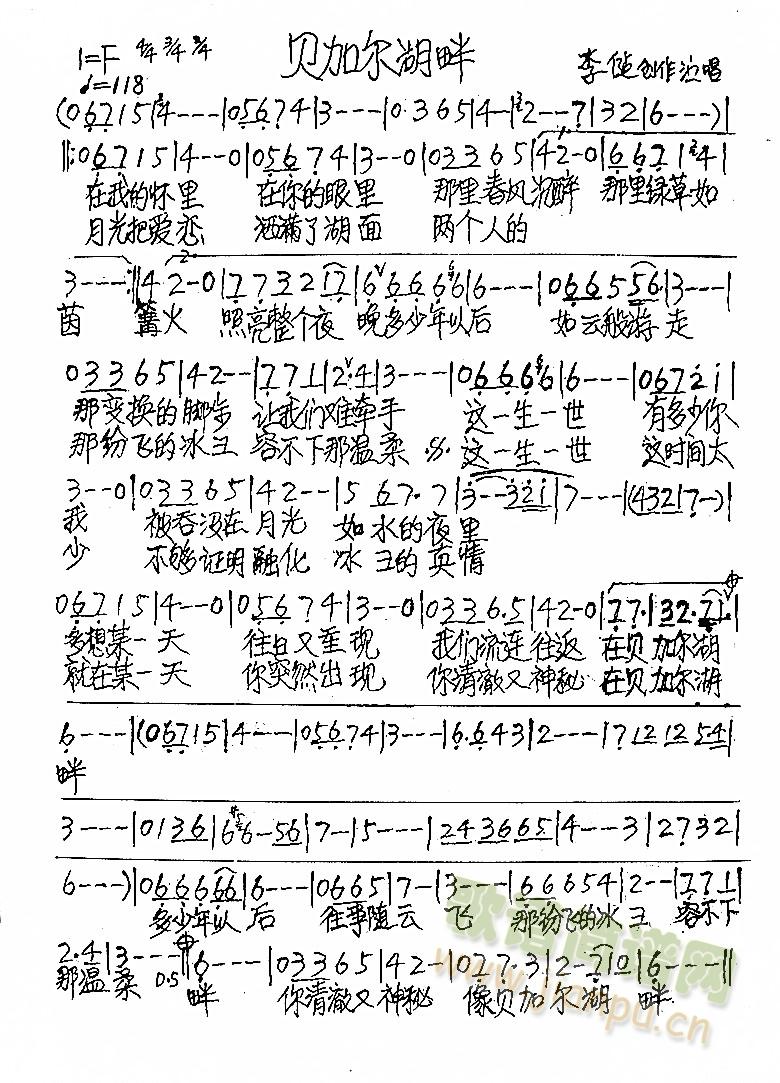 1=F 4/4 3/4 2/4 贝加尔湖畔 李健创作演唱
♩=118
(0 6 7 1 5 | 4 - - - | 0 5 6 7 4 | 3 - - - | 0· 3 6 5 | 4 - | 2 - - 7 | 3 2 | 6 - - - ) |
‖: 0 6 7 1 5 | 4 - - 0 | 0 5 6 7 4 | 3 - - 0 | 0 3 3 6 5 | 4 2 - 0 | 6 6 7 1 2 4 |
在我的怀里 在你的眼里 那里春风沉醉 那里绿草如
月光把爱恋 洒满了湖面 两个人的
3 - - - :‖ 4 2 - 0 | 7 7 3 2 1 7 | 6 6 6 6 6 | 6 - - - | 0 6 6 5 5 6· | 3 - - - |
茵 篝火 照亮整个夜 晚多少年以后 如云般游走
0 3 3 6 5 | 4 2 - - | 7 7 1 | 2· 4 | 3 - - - | 0 6 6 6 6 | 6 - - - | 0 6 7 2 1 |
那变换的脚步 让我们难牵手 这一生一世 有多少你
那纷飞的冰 容不下那温柔 这一生一世 这时间太
3 - - 0 | 0 3 3 6 5 | 4 2 - - | 5 6 7· 7 | 3 - - 3 2 1 | 7 - - - | (4 3 2 | 7 - ) |
我 被吞没在月光 如水的夜里
少 不够证明融化 冰 的真情
0 6 7 1 5 | 4 - - 0 | 0 5 6 7 4 | 3 - - 0 | 0 3 3 6· 5 | 4 2 - 0 | 7 7· | 3 2· 7 1· |
多想某一天 往日又重现 我们流连往返 在贝加尔湖
就在某一天 你突然出现 你清澈又神秘 在贝加尔湖
6 - - - | (0 6 7 1 5 | 4 - - - | 0 5 6 7 4 | 3 - - - | 6· 6 4 3 | 2 - - - | 7 1 2 1 2 5 4 |
畔
3 - - - | 0 1 3 6 | 6 6 - 5 6 | 7 - - | 5 - - - | 2 4 3 6 6 5 | 4 - - 3 | 2 7 3 2 |
6 - - - ) | 0 6 6 6 6 6 | 6 - - - | 0 6 6 5 | 7 - | 3 - - - | 6 6 6 5 4 | 2 - - | 7 7 1 |
多少年以后 往事随云飞 那纷飞的冰 容不下
2· 4 | 3 - - - ‖ 6 - - - | 0 3 3 6 5 | 4 2 - | 0 2 7· 3 | 2 - 7 1 0 | 6 - - - ‖
那温柔 D.S 畔 你清澈又神秘 像贝加尔湖畔
歌谱简谱网
www.jianpu.cn